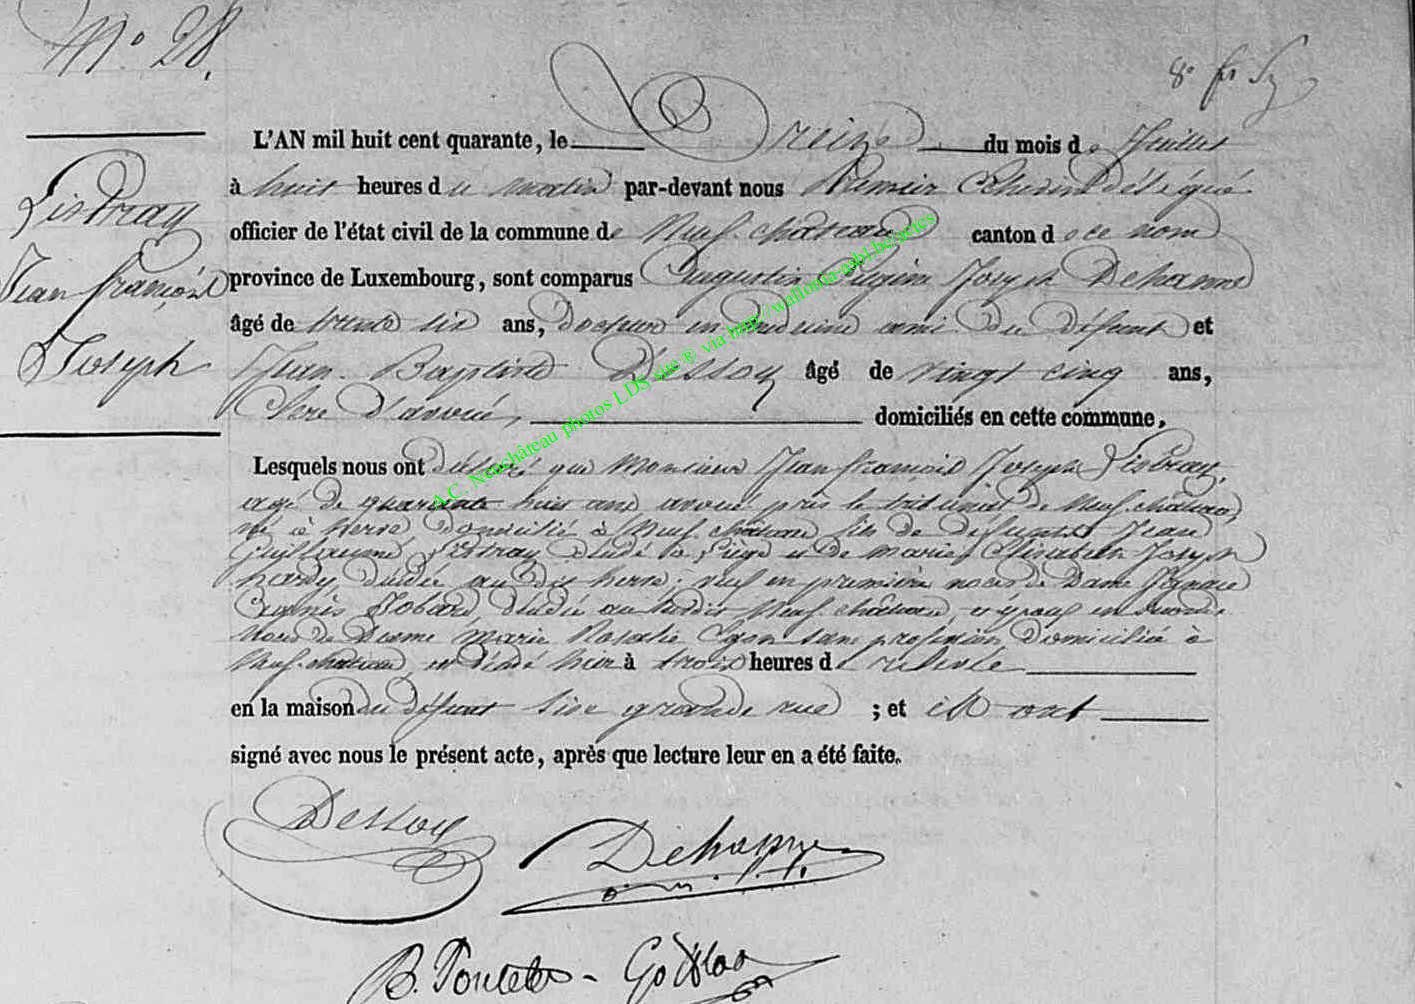 N° 28.
L'AN mil huit cent quarante, le Treize du mois de Juillet
à huit heures du matin par-devant nous Premier Echevin délégué
officier de l'état civil de la commune de Neufchâteau canton de ce nom
province de Luxembourg, sont comparus Augustin Joseph
âgé de trente six ans, docteur en médecine ami du défunt et
Jean Baptiste Dessoy âgé de vingt cinq ans,
Clerc d'avoué, domiciliés en cette commune,
Listray
Jean françois
Joseph
Lesquels nous ont déclaré que Monsieur Jean francois Joseph Listray,
agé de quarante huit ans avoué près le tribunal de Neufchâteau,
né à Herve domicilié à Neufchâteau fils de défunts Jean
Guillaume Listray décédé à Liége et de Marie Elisabeth Joseph
hardy décédée au dit herve; veuf en première noces de Dame
Agnès décédée au dit Neufchâteau et époux en seconde
noces de Dame Marie Rosalie sans profession domiciliée à
Neufchâteau, est décédé hier à trois heures de relevée
en la maison du défunt sise grande rue ; et ils ont
signé avec nous le présent acte, après que lecture leur en a été faite.
Dessoy
A.C. Neufchâteau photos LDS site ® via http://wallonia-asbl.be/actes